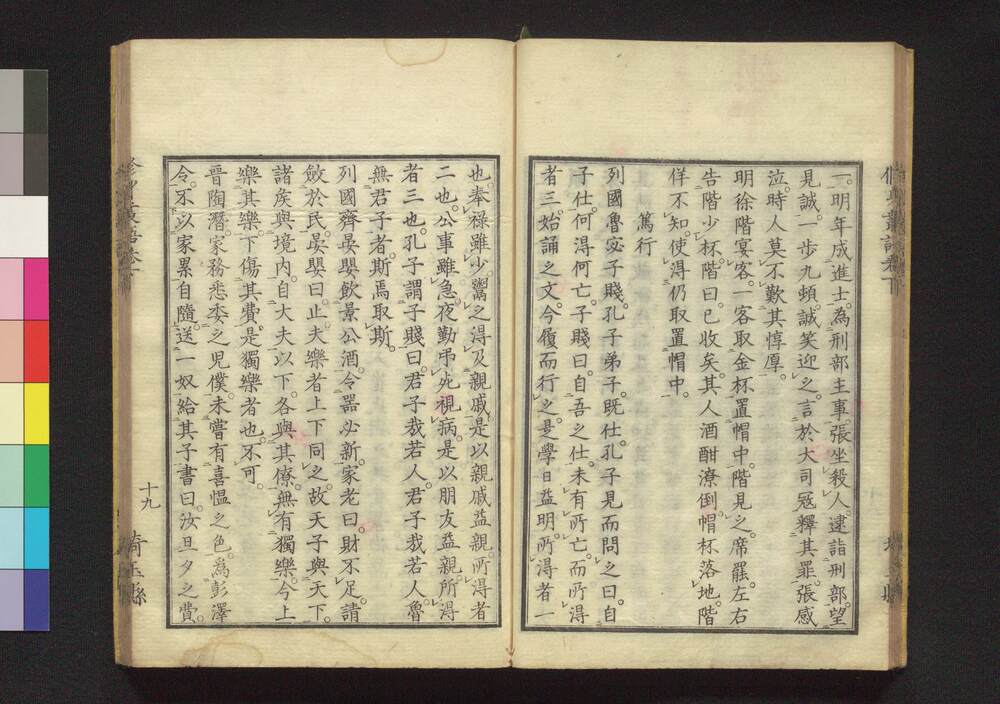 一明年成進士。為刑部主事。張坐殺人。逮詣刑部。望
見誠。一步九頓。誠笑迎之。言於大司寇。釋其罪。張感
泣。時人莫不歎其惇厚。
明徐階宴客。一客取金杯置帽中。階見之。席罷。左右
告階少杯。階曰。已收矣。其人酒酣潦倒。帽杯落地。階
佯不知。使得仍取置帽中。
篤行
列國魯宓子賤。孔子弟子。既仕。孔子見而問之曰。自
子仕。何得何亡。子賤曰。自吾之仕。未有所亡。而所得
者三。始誦之文。今履而行之。是學日益明。所得者一
也。奉祿雖少。鬻之得及親戚。是以親戚益親。所得者
二也。公事雖急。夜勤弔死視病。是以朋友益親。所得
者三也。孔子謂子賤曰。君子哉若人。君子哉若人。魯
無君子者。斯焉取斯。
列國齊晏嬰飲景公酒。令器必新。家老曰。財不足。請
斂於民。晏嬰曰。止。夫樂者上下同之。故天子與天下。
諸侯與境內。自大夫以下。各與其僚。無有獨樂。今上
樂其樂。下傷其費。是獨樂者也。不可。
晉陶潛。家務悉委之兒僕。未嘗有喜慍之色。為彭澤
令。不以家累自隨。送一奴給其子書曰。汝旦夕之費。
十九
埼玉縣